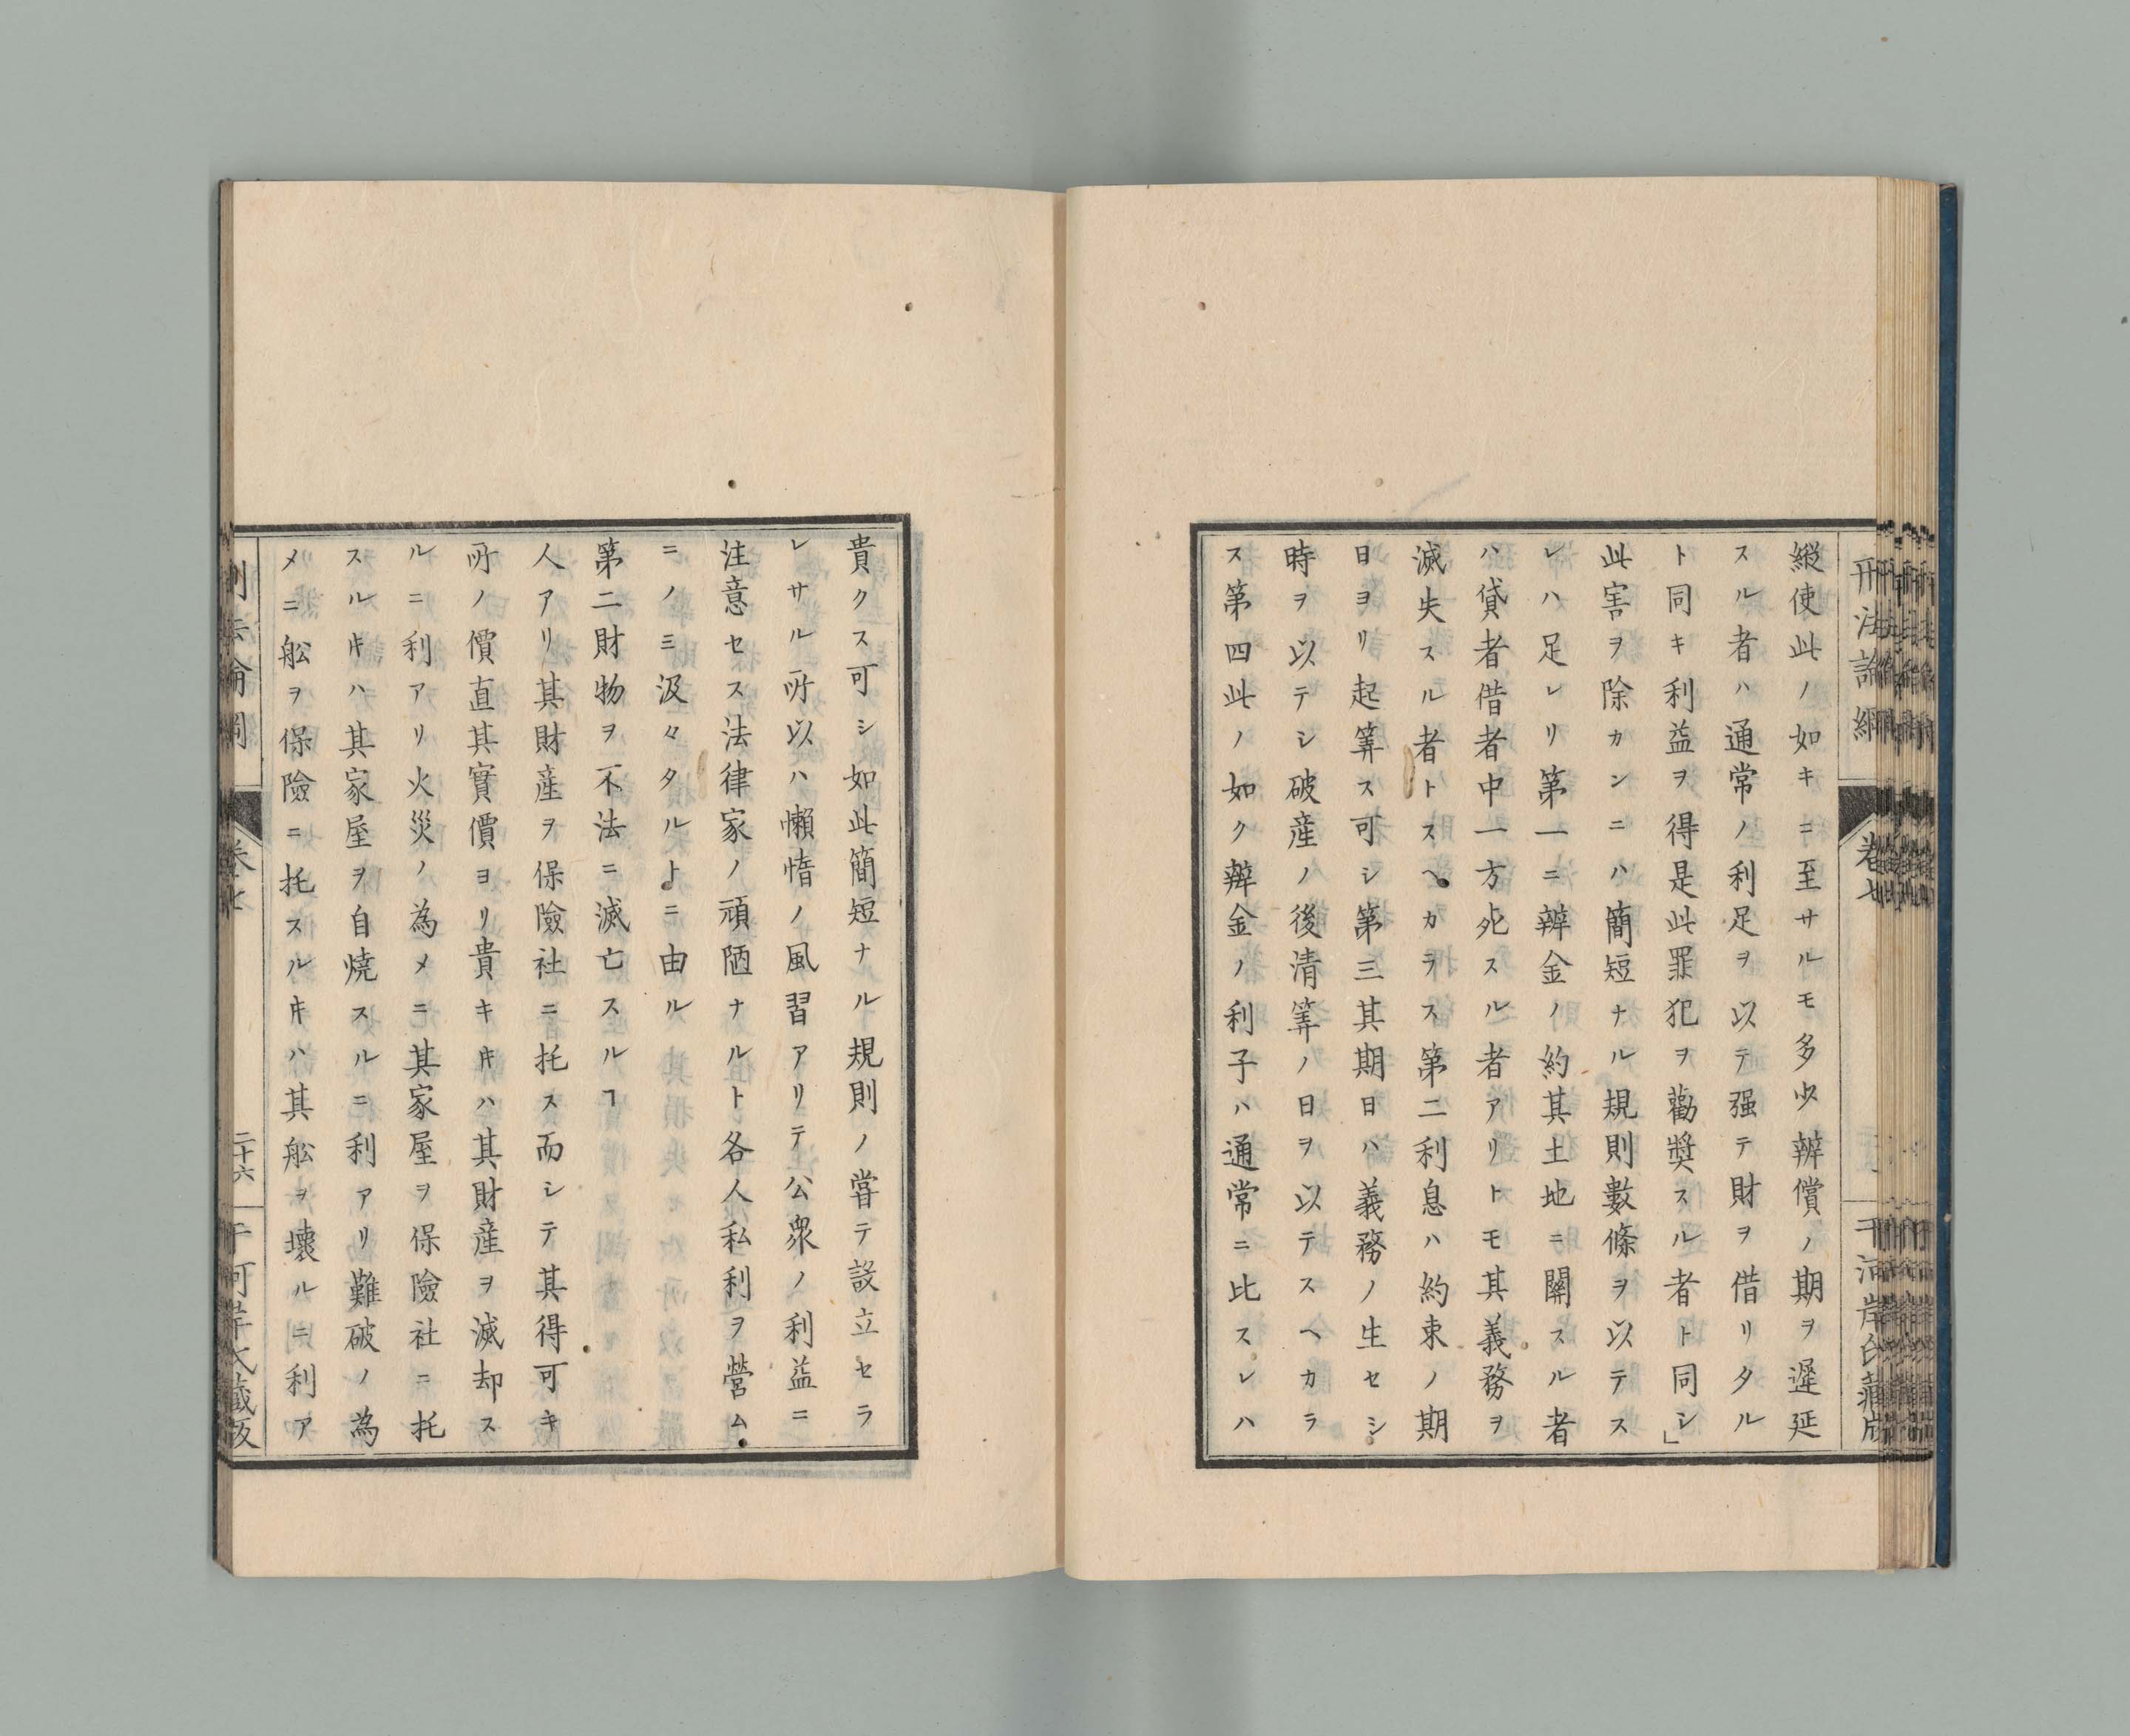 刑法論綱
卷七
干河岸氏藏版
縱使此ノ如キニ至サルモ多少辨償ノ期ヲ遲延
スル者ハ通常ノ利足ヲ以テ强テ財ヲ借リタル
ト同キ利益ヲ得是此罪犯ヲ勸奬スル者ト同シ」
此害ヲ除カンニハ簡短ナル規則數條ヲ以テス
レハ足レリ第一ニ辨金ノ約其土地ニ關スル者
ハ貸者借者中一方死スル者アリトモ其義務ヲ
滅失スル者トスヘカラス第二利息ハ約束ノ期
日ヨリ起筭ス可シ第三其期日ハ義務ノ生セシ
時ヲ以テシ破産ノ後清筭ノ日ヲ以テスヘカラ
ス第四此ノ如ク辨金ノ利子ハ通常ニ比スレハ
貴クス可シ如此簡短ナル規則ノ甞テ設立セラ
レサル所以ハ懶惰ノ風習アリテ公衆ノ利益ニ
注意セス法律家ノ頑陋ナルト各人私利ヲ營ム
ニノミ汲々タルトニ由ル
第二財物ヲ不法ニ滅亡スルヿ
人アリ其財産ヲ保險社ニ托ス而シテ其得可キ
所ノ價直其實價ヨリ貴キキハ其財産ヲ滅却ス
ルニ利アリ火災ノ為メニ其家屋ヲ保險社ニ托
スルキハ其家屋ヲ自燒スルニ利アリ難破ノ為
メニ舩ヲ保險ニ托スルキハ其舩ヲ壞ルニ利ア
刑法論綱
卷七
二十六
干河岸氏藏版